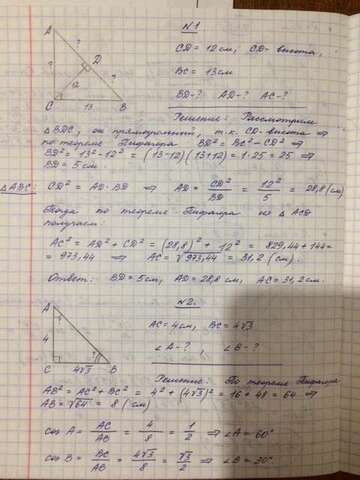 N1
A
CD = 12 см, CD - высота,
BC = 13 см
BD - ? AD - ? AC - ?
?
?
D
?
12
C
13
B
Решение: Рассмотрим
△BDC, он прямоугольный, т.к. CD - высота ⇒
по теореме Пифагора BD² = BC² - CD² ⇒
BD² = 13² - 12² = (13-12)(13+12) = 1·25 = 25 ⇒
BD = 5 см.
△ABC: CD² = AD · BD ⇒ AD = CD²/BD = 12²/5 = 28,8 (см)
Тогда по теореме Пифагора из △ACD
получаем:
AC² = AD² + CD² = (28,8)² + 12² = 829,44 + 144 =
= 973,44 ⇒ AC = √973,44 = 31,2 (см).
Ответ: BD = 5 см, AD = 28,8 см, AC = 31,2 см.
N2.
A
AC = 4 см, BC = 4√3
∠A - ? , ∠B - ?
?
4
?
C
4√3
B
Решение: По теореме Пифагора
AB² = AC² + BC² = 4² + (4√3)² = 16 + 48 = 64 ⇒
AB = √64 = 8 (см)
cos A = AC/AB = 4/8 = 1/2 ⇒ ∠A = 60°
cos B = BC/AB = 4√3/8 = √3/2 ⇒ ∠B = 30°